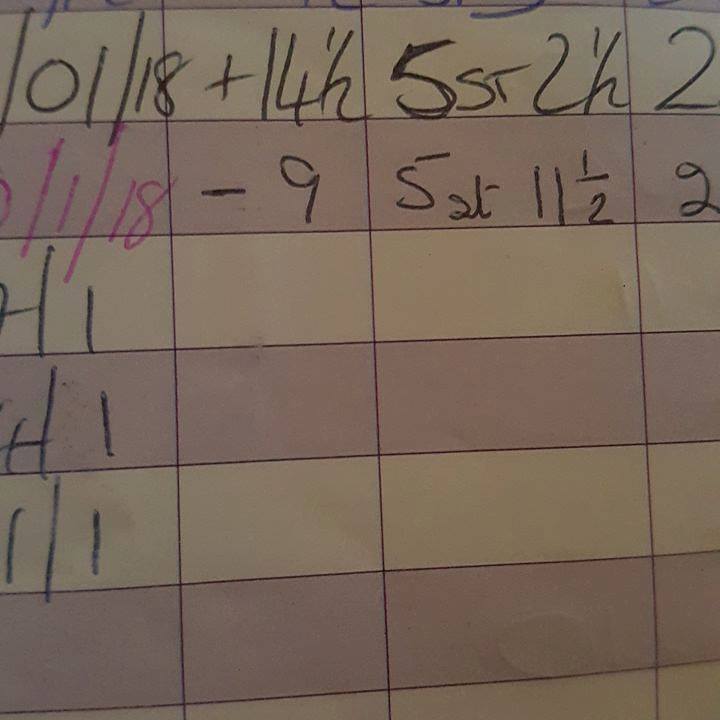 /01/18 +14½ 5st 2½ 2
/1/18 - 9 5st 11½ 2
/1
/1
1/1